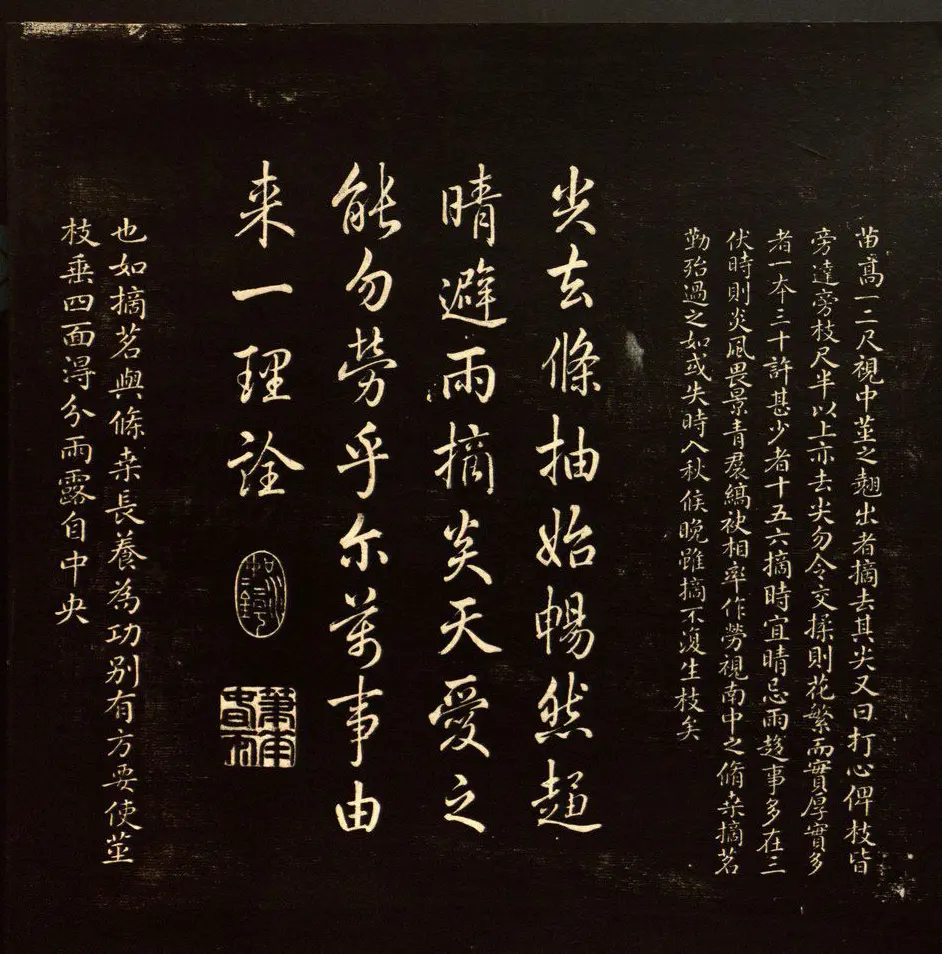 苗髙一二尺視中莖之翹出者摘去其尖又曰打心俾枝皆
旁達旁枝尺半以上亦去尖勿令交揉則花繁而實厚實多
者一本三十許甚少者十五六摘時宜晴忌雨趍事多在三
伏時則炎風畏景青裠縞袂相率作勞視南中之脩桒摘茗
勤殆過之如或失時入秋候晚雖摘不復生枝矣
尖去條抽始暢然趍
晴避雨摘炎天愛之
能勿勞乎尔萬事由
来一理詮
也如摘茗與條桒長養為功别有方要使莖
枝垂四面淂分雨露自中央